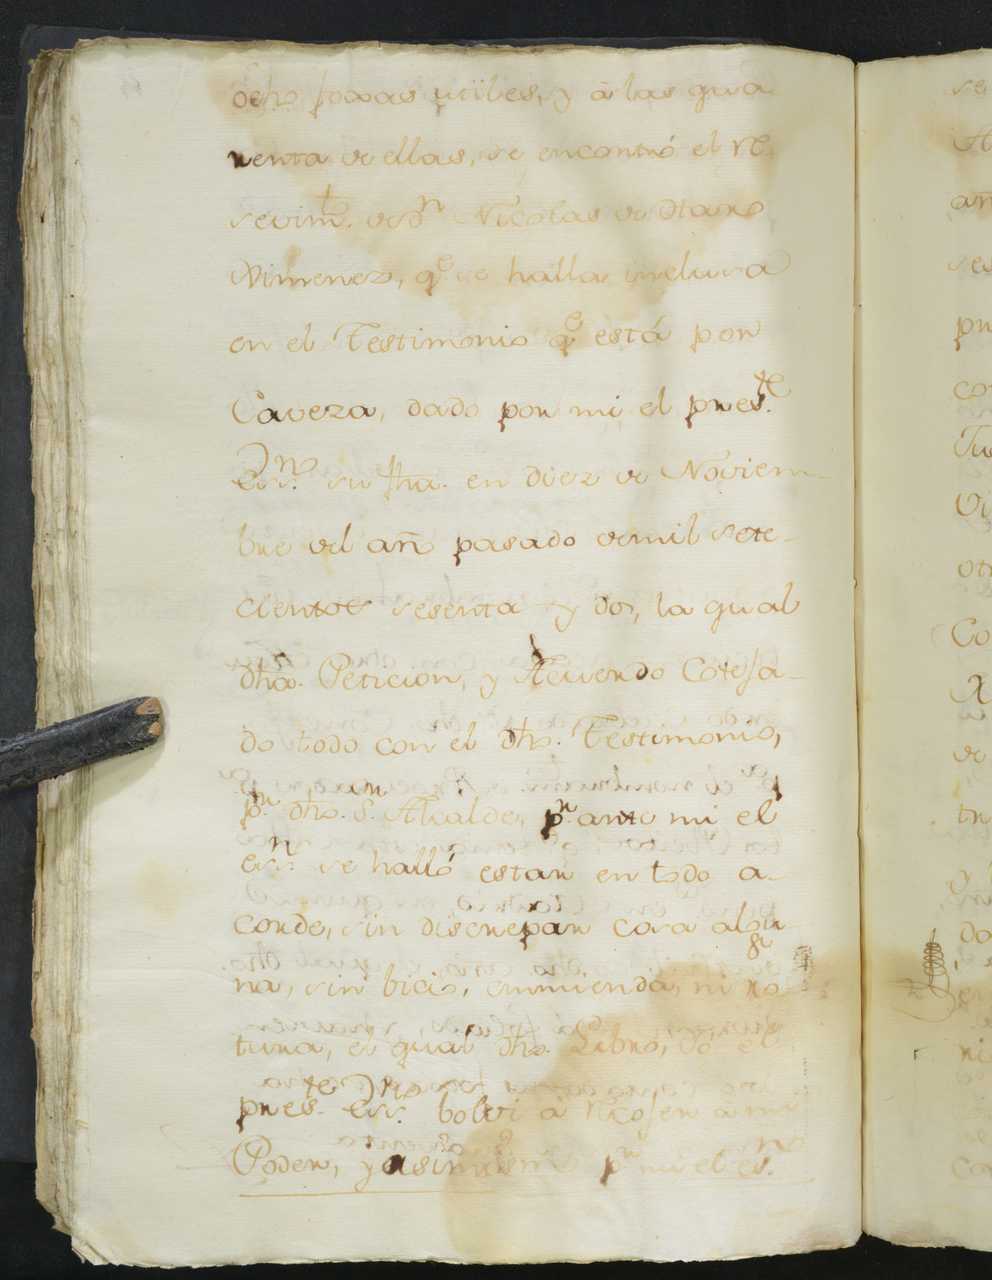 ocho foxas utiles, y â las qua
renta de ellas, se encontró el re
sevimto. de Dn. Nicolas de Haro
Ximenez, qe. se halla inclusa
en el Testimonio qe está por
Caveza, dado por mi el preste.
Essno. su fha. en diez de Noviem-
bre del añ pasado de mil sete-
cientos sesenta y dos, la qual
dha. Peticion, y Acuerdo Coteja-
do todo con el dho. Testimonio,
pr. dho. Sr. Alcalde, pr. ante mi el
essn. se halló estar en todo a-
corde, sin discrepar cosa algu-
na, sin bicio, enmienda, ni ro-
tura, el qual dho. Libro, Yo el
preste. Essno. bolvi â recojer â mi
Poder, y asimismo pr. mi, el esno.
se
A
añ
ses
pr
co
Vi
otr
Co
X
de
tr
y
do